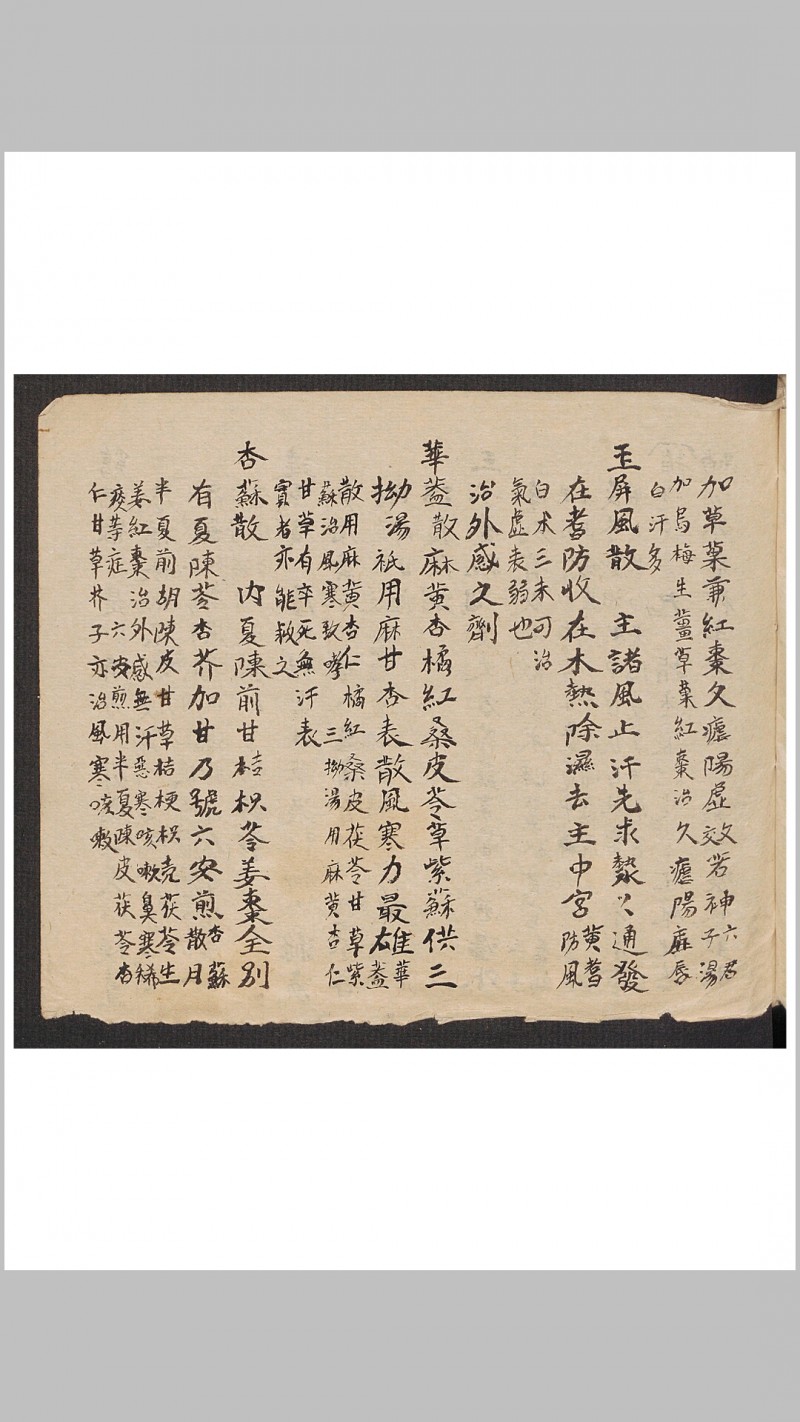 加草菓兼紅棗久瘧陽虛效若神六君
子湯
加烏梅生薑草菓紅棗治久瘧陽虛唇
白汗多
玉屏風散　主諸風止汗先求㸑〻通發
在耆防收在木熱除濕去主中宮黃耆
防風
白术三末可治
氣虛表弱也
治外感之劑
華蓋散麻黃杏橘紅桑皮苓草紫蘇供三
拗湯祇用麻甘杏表散風寒力最雄華
蓋
散用麻黃杏仁橘紅桑皮茯苓甘草紫
蘇治風寒致哮　三拗湯用麻黃杏仁
甘草有卒死無汗表
實者亦能救之
杏蘇散　內夏陳前甘桔枳苓姜棗全別
有夏陳苓杏芥加甘乃號六安煎杏蘇
散用
半夏前胡陳皮甘草桔梗枳壳茯苓生
姜紅棗治外感無汗惡寒咳嗽臭寒稀
痰等症　六安煎用半夏陳皮茯苓杏
仁甘草芥子亦治風寒咳嗽